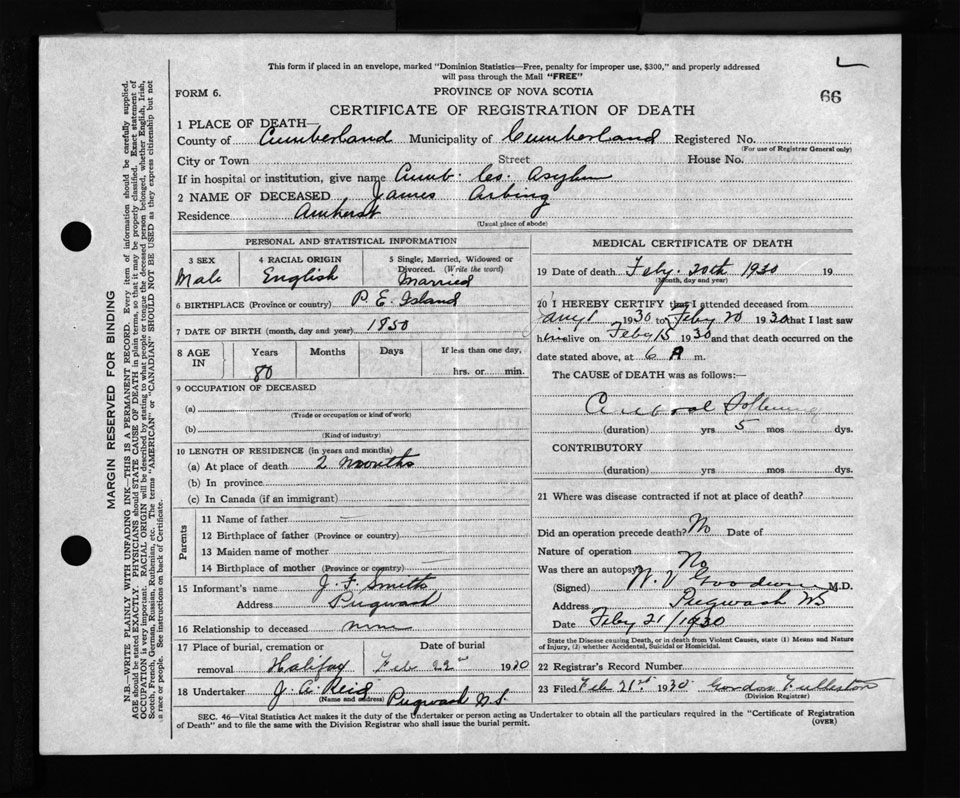 This form if placed in an envelope, marked "Dominion Statistics—Free, penalty for improper use, $300," and properly addressed
will pass through the Mail "FREE"
FORM 6.
PROVINCE OF NOVA SCOTIA
66
CERTIFICATE OF REGISTRATION OF DEATH
1 PLACE OF DEATH—
County of Cumberland Municipality of Cumberland Registered No.
(For use of Registrar General only)
City or Town Street House No.
If in hospital or institution, give name Cumb. Co. Asylum
2 NAME OF DECEASED James Arbing
Residence Amherst
(Usual place of abode)
PERSONAL AND STATISTICAL INFORMATION
3 SEX 4 RACIAL ORIGIN 5 Single, Married, Widowed or
Divorced. (Write the word)
Male English Married
6 BIRTHPLACE (Province or country) P. E. Island
7 DATE OF BIRTH (month, day and year) 1850
8 AGE IN Years Months Days If less than one day,
80 hrs. or min.
9 OCCUPATION OF DECEASED
(a)
(Trade or occupation or kind of work)
(b)
(Kind of industry)
10 LENGTH OF RESIDENCE (in years and months)
(a) At place of death 2 months
(b) In province
(c) In Canada (if an immigrant)
Parents
11 Name of father
12 Birthplace of father (Province or country)
13 Maiden name of mother
14 Birthplace of mother (Province or country)
15 Informant's name J. F. Smith
Address Pugwash
16 Relationship to deceased none
17 Place of burial, cremation or Date of burial
removal Halifax Feb 22nd 1930
18 Undertaker J. A. Reid Pugwash N.S.
(Name and address)
MEDICAL CERTIFICATE OF DEATH
19 Date of death Feby. 20th 1930 19
(Month, day and year)
20 I HEREBY CERTIFY that I attended deceased from
1930 to Feby 20 1930 that I last saw
him alive on Feby 15 1930 and that death occurred on the
date stated above, at 6 A m.
The CAUSE of DEATH was as follows:—
Cerebral Softening
(duration) yrs 5 mos dys.
CONTRIBUTORY
(duration) yrs. mos. dys.
21 Where was disease contracted if not at place of death?
Did an operation precede death? No Date of
Nature of operation
Was there an autopsy No
(Signed) Goodwin M.D.
Address Pugwash NS
Date Feby 21/1930
State the Disease causing Death, or in death from Violent Causes, state (1) Means and Nature
of Injury, (2) whether Accidental, Suicidal or Homicidal.
22 Registrar's Record Number
23 Filed Feb 21st 1930 Gordon Fullerton
(Division Registrar)
SEC. 46—Vital Statistics Act makes it the duty of the Undertaker or person acting as Undertaker to obtain all the particulars required in the "Certificate of Registration
of Death" and to file the same with the Division Registrar who shall issue the burial permit.
(OVER)
MARGIN RESERVED FOR BINDING
N.B.—WRITE PLAINLY WITH UNFADING INK—THIS IS A PERMANENT RECORD. Every item of information should be carefully supplied.
AGE should be stated EXACTLY. PHYSICIANS should STATE CAUSE OF DEATH in plain terms, so that it may be properly classified. Exact statement of
OCCUPATION is very important. RACIAL ORIGIN will be described by stating to what people or tongue the deceased person belonged, whether English, Irish,
Scotch, French, German, Russian, Ruthenian, etc. The terms "AMERICAN" or "CANADIAN" SHOULD NOT BE USED as they express citizenship but not
a race or people. See instructions on back of Certificate.